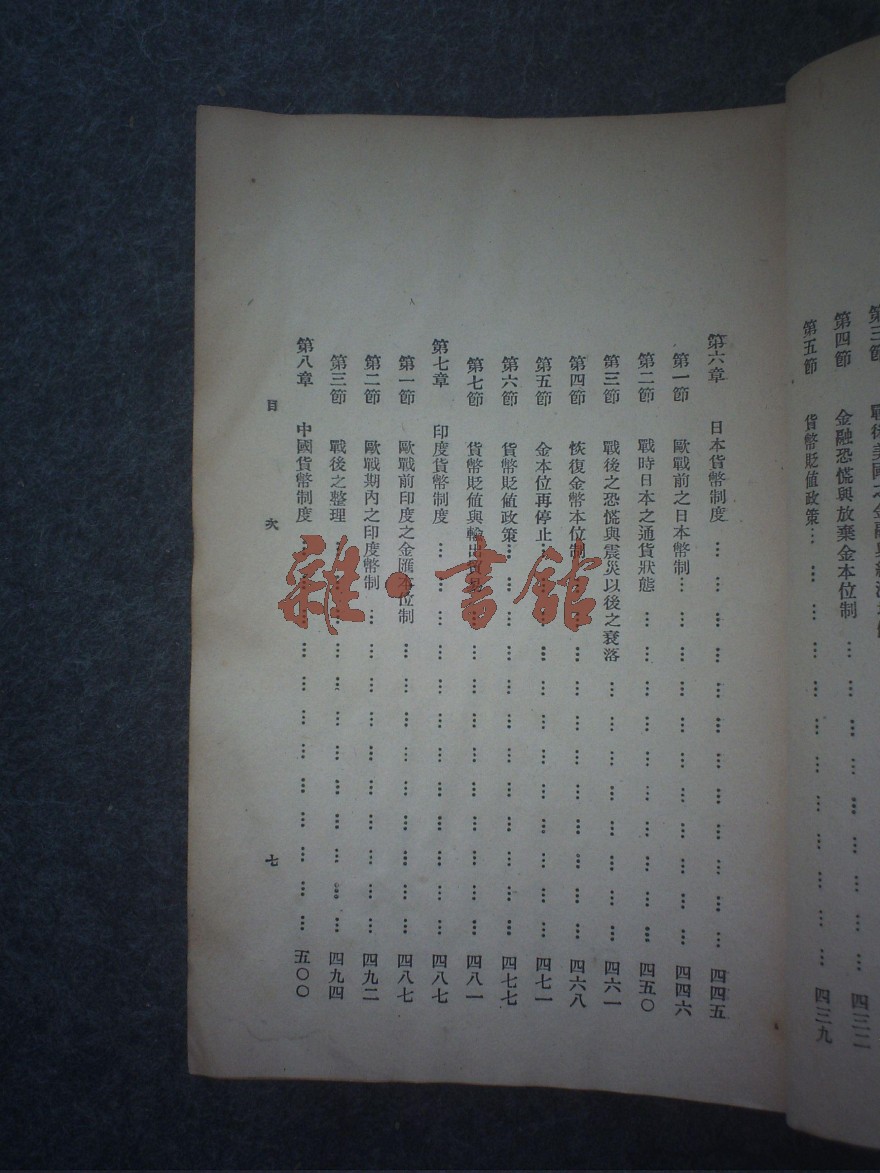 第四節 金融恐慌與放棄金本位制 … … … … … … … … … … 四三二
第五節 貨幣貶值政策… … … … … … … … … … … … … 四三九
第六章 日本貨幣制度 … … … … … … … … … … … … … 四四五
第一節 歐戰前之日本幣制… … … … … … … … … … … … 四四六
第二節 戰時日本之通貨狀態 … … … … … … … … … … 四五〇
第三節 戰後之恐慌與震災以後之衰落 … … … … … … … … 四六一
第四節 恢復金幣本位制… … … … … … … … … … … … 四六八
第五節 金本位再停止… … … … … … … … … … … … 四七一
第六節 貨幣貶值政策… … … … … … … … … … … … 四七七
第七節 貨幣貶值與輸出貿易 … … … … … … … … … … 四八一
第七章 印度貨幣制度 … … … … … … … … … … … … 四八七
第一節 歐戰前印度之金匯本位制 … … … … … … … … … 四八七
第二節 歐戰期內之印度幣制 … … … … … … … … … … 四九二
第三節 戰後之整理 … … … … … … … … … … … … 四九四
第八章 中國貨幣制度 … … … … … … … … … … … … 五〇〇
目 次 七
雜·書館